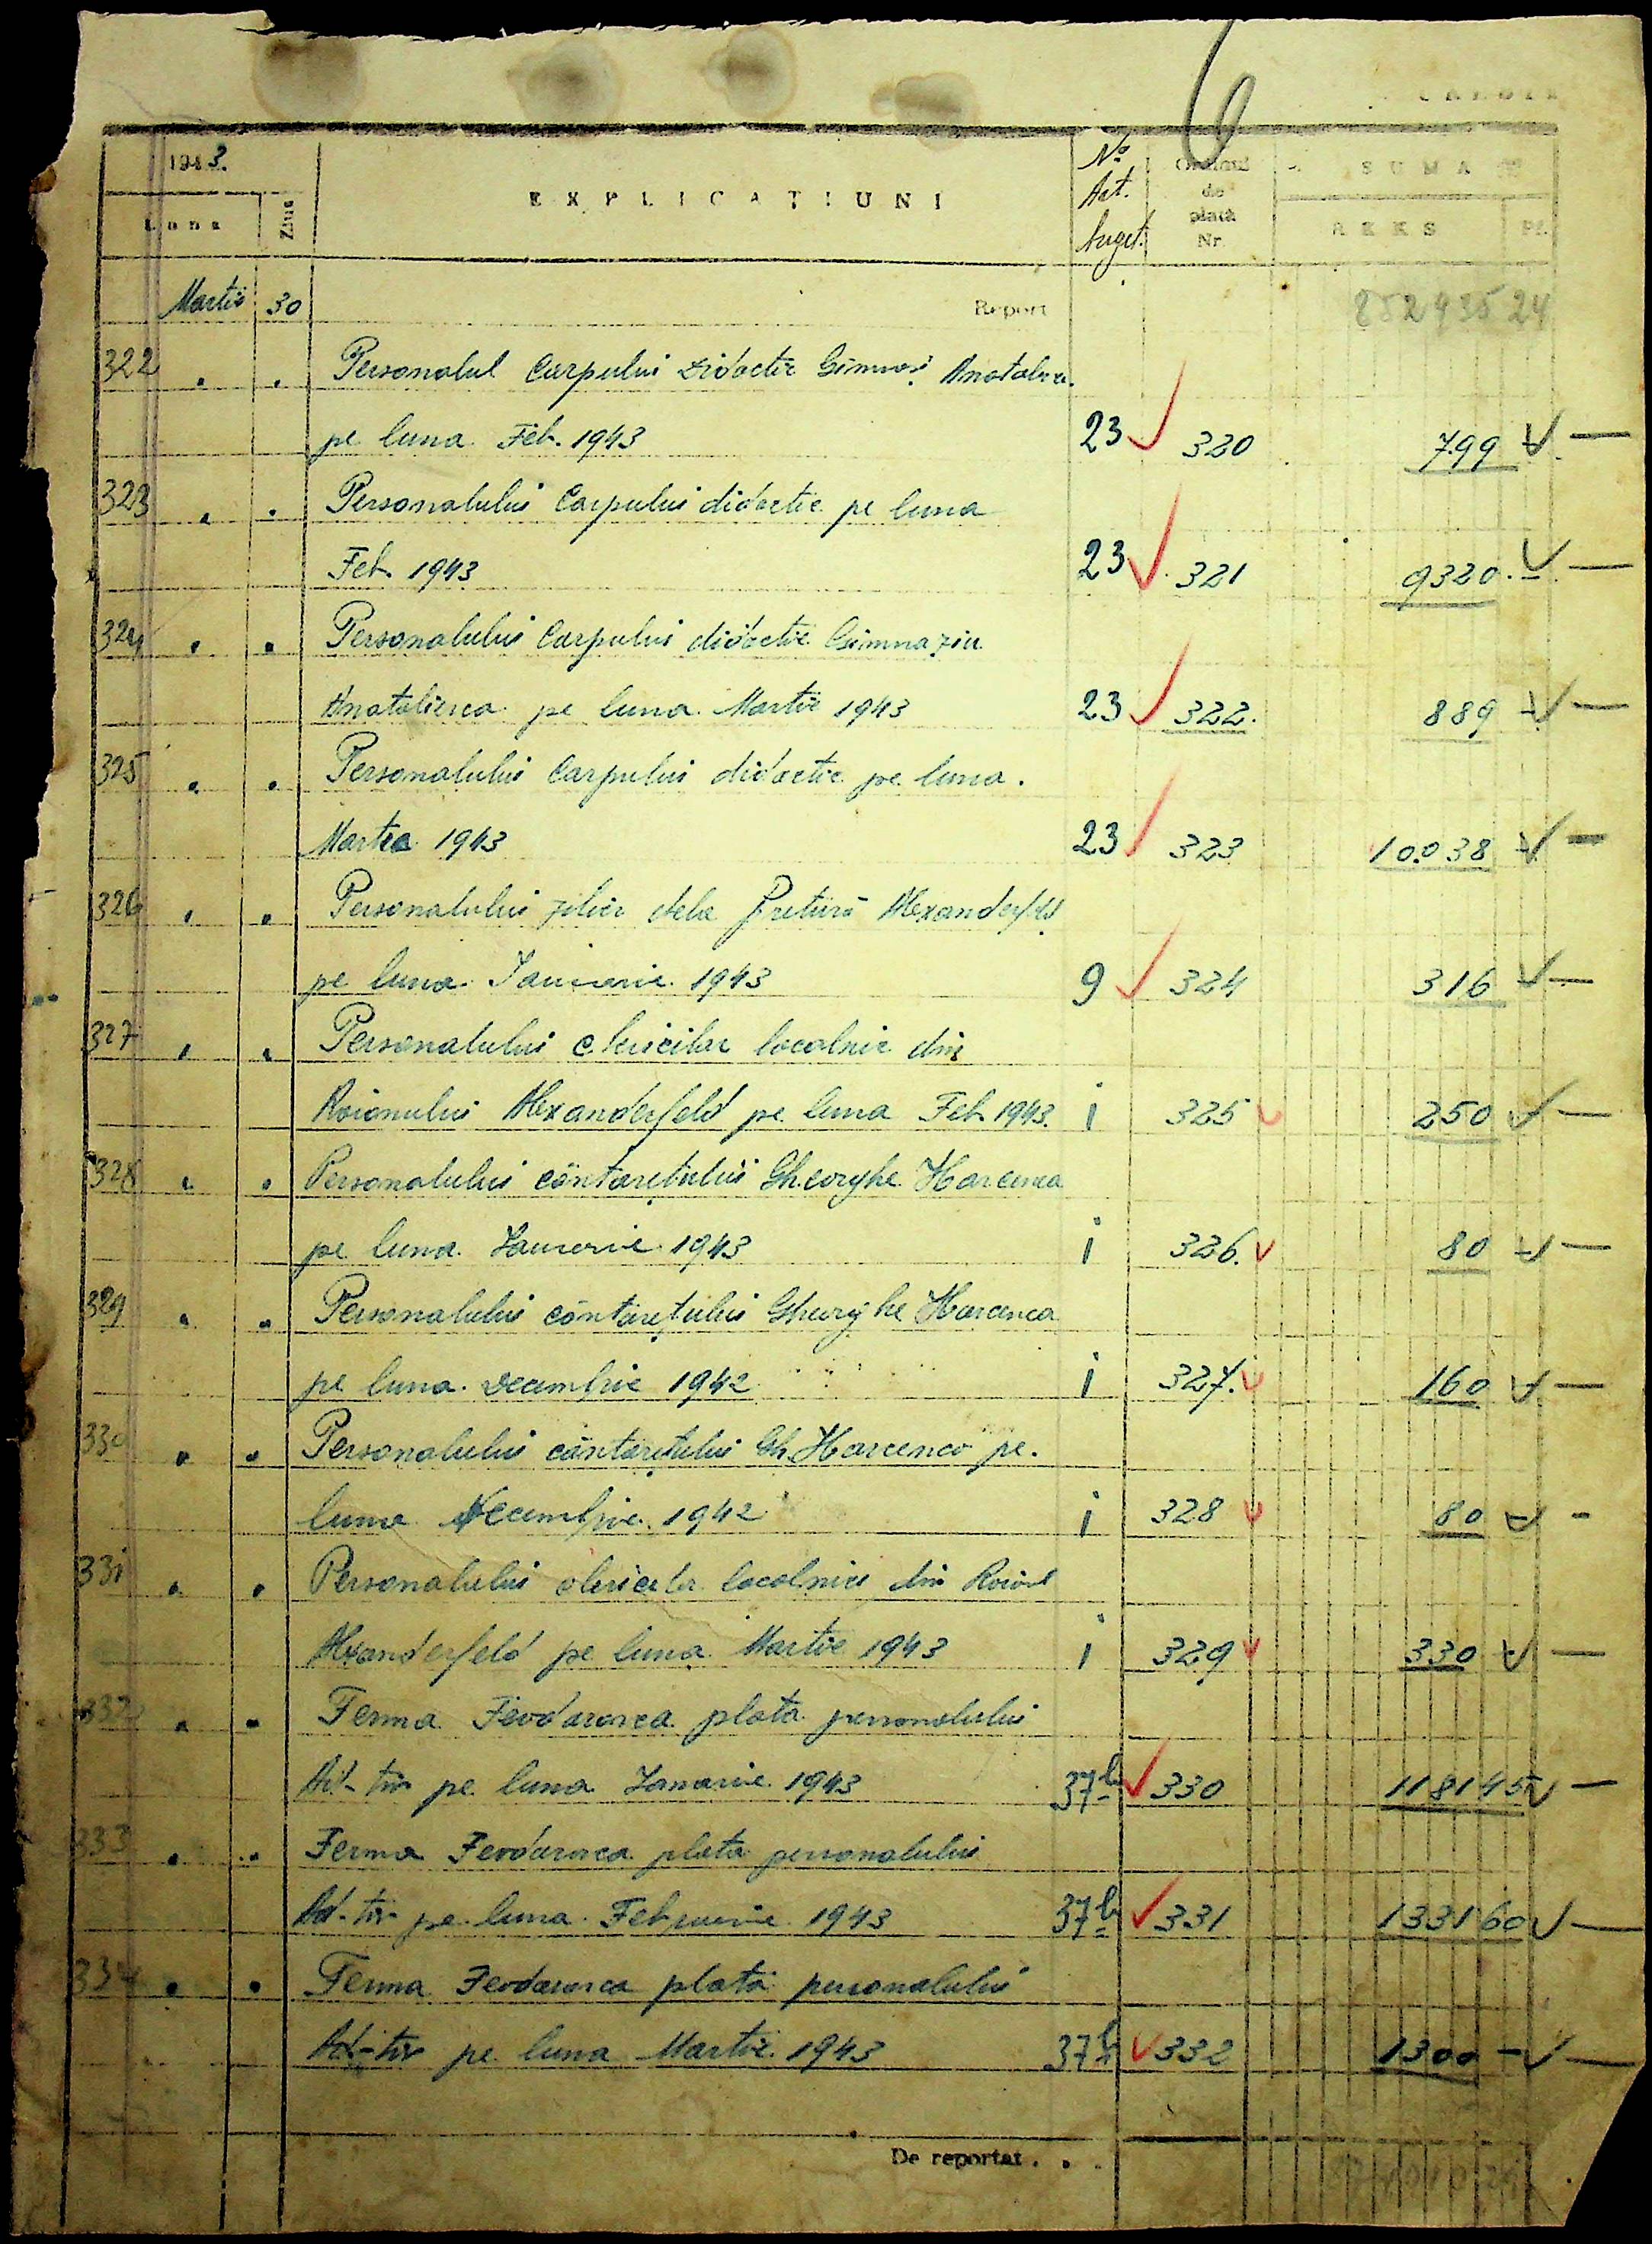 6
1943.
Luna Ziua EXPLICAȚIUNI No Art. Buget. Ordinul de plată Nr. SUMA RKKS Pf.
Martie 30 Report 852435 24
322 Personalul Corpului Didactic Gimnazi
pe luna Feb. 1943 23 320 799 —
323 Personalului Corpului didactic pe luna
Feb 1943 23 321 9320.- —
324 Personalului Corpului didactic Gimnaziu
Anatolievca pe luna Martie 1943 23 322. 889 - —
325 Personalului Corpului didactic pe luna.
Martie 1943 23 323 10.038 - —
326 Personalului zilier dela Pretură Alexanderfeld
pe luna Ianuarie 1943 9 324 316 —
327 Personalului clericilor localnic din
Raionului Alexanderfeld pe luna Feb 1943. i 325 250 —
328 Personalului cântărețului Gheorghe Harcenca
pe luna Ianuarie 1943 i 326. 80 - —
329 Personalului cântărețului Gheorghe Harcenca
pe luna Decembrie 1942 i 327. 160 —
330 Personalului cântărețului Gh. Harcenco pe.
luna Decembrie 1942 i 328 80 - -
331 Personalului clericilor localnici din Raionul
Alexanderfeld pe luna Martie 1943 i 329 330 —
332 Ferma Feodorovca plata personalului
Ad-tiv pe luna Ianuarie 1943 37b 330 1181 45 —
333 Ferma Feodorovca plata personalului
Ad-tiv pe luna Februarie 1943 37b 331 1331 60 —
334 Ferma Feodorovca plată personalului
Ad-tiv pe luna Martie 1943 37b 332 1300 - —
De reportat . . .